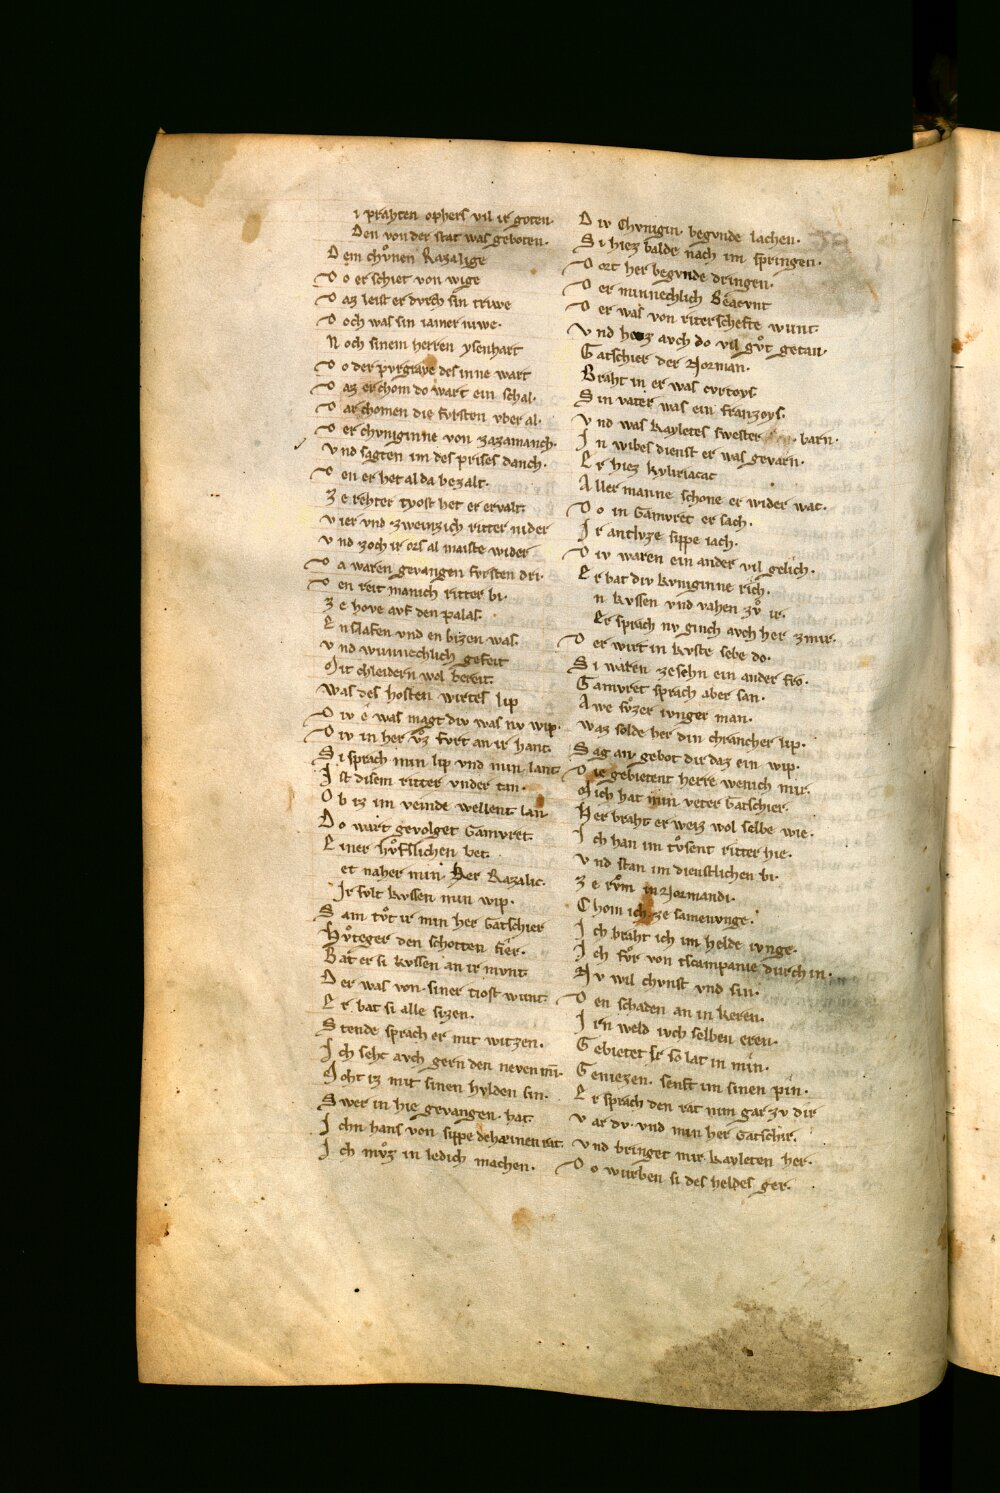 i prahten ophers vil ir goten·
Den von der stat was geboten·
Dem chuͦnen Razalige
Do er schiet von wige
Daz leist er dvrch sin triwe
Doch was sin iamer niwe·
Noch sinem herren ysenhart
Do der pvrgraue des inne wart
Daz er chom do wart ein schal·
Dar chomen die fvrsten vber al·
Der chvniginne von zazamanch·
Vnd sagten im des prises danch·
Den er het al da bezalt·
Ze rehter tyost het er ervalt
Vier vnd zweinzich ritter nider
Vnd zoch ir ors al maiste wider
Da waren gevangen fvrsten dri·
Den reit manich ritter bi·
Ze hove avf den palas·
Enslafen vnd enbizen was·
Vnd wunnechlich gefeit
Mit chleidern wol bereit·
Was des hosten wirtes lip
Div e was magt div was nv wip·
Div in her vͦz fvrt an ir hant·
Si sprach min lip vnd min lant
Ist disem ritter vnder tan·
Ob iz im veinde wellent lan
Do wart gevolget Gamvret
Einer hvͦfslichen bet·
et naher min· her Razalic·
Ir svlt kvssen min wip·
Sam tvͦt ir min her Gatschier
Hvͦteger den schotten fier·
Bat er si kvssen an ir mvnt
Der was von siner tiost wunt·
Er bat si alle sizen·
Stende sprach er mit witzen·
Ich seht avch gern den neven min·
Moht iz mit sinen hvlden sin·
Swer in hie gevangen hat
Ichn hans von sippe deheinen rat·
Ich mvͦz in ledich machen·
Div Chvnigin begvnde lachen·
Si hiez balde nach im springen·
Dort her begvnde dringen·
Der minnechlich Beaevnt
Der was von riterschefte wunt
Vnd hetz avch do vil gvͦt getan·
Gatschier der Norman·
Braht in er was cvrtoys
Sin vater was ein franzoys·
Vnd was kayletes swester barn·
In wibes dienst er was gevarn·
Er hiez kyliriacac
Aller manne schone er wider wac·
Do in Gamvret er sach·
Ir antlvze sippe iach·
Div waren ein ander vil gelich·
Er bat div kvniginne rich·
n kvssen vnd vahen zvͦ ir·
Er sprach nv ginch avch her zmir·
Der wirt in kvste selbe do·
Si waren zesehn ein ander fro·
Gamvret sprach aber san·
Awe svͦzer ivnger man·
Waz solde her din chrancher lip·
Sag an gebot dir daz ein wip·
Die gebietent herre wenich mir·
Mich hat min veter Gatschier·
Her braht er weiz wol selbe wie·
Ich han im tvͦsent ritter hie·
Vnd stan im dienstlichen bi·
Ze rvͦm in Normandi·
Chom ich ze samenvnge·
Ich braht ich im helde ivnge·
Ich fvͦr von tscampanie dvrch in·
Nv wil chvnst vnd sin·
Den schaden an in keren·
Irn weld ivch selben eren·
Gebietet ir so lat in min·
Geniezen· senft im sinen pin·
Er sprach den rat nim gar zv dir
Var dv· vnd min her Gatschir·
Vnd bringet mir kayleten her·
Do wurben si des heldes ger·